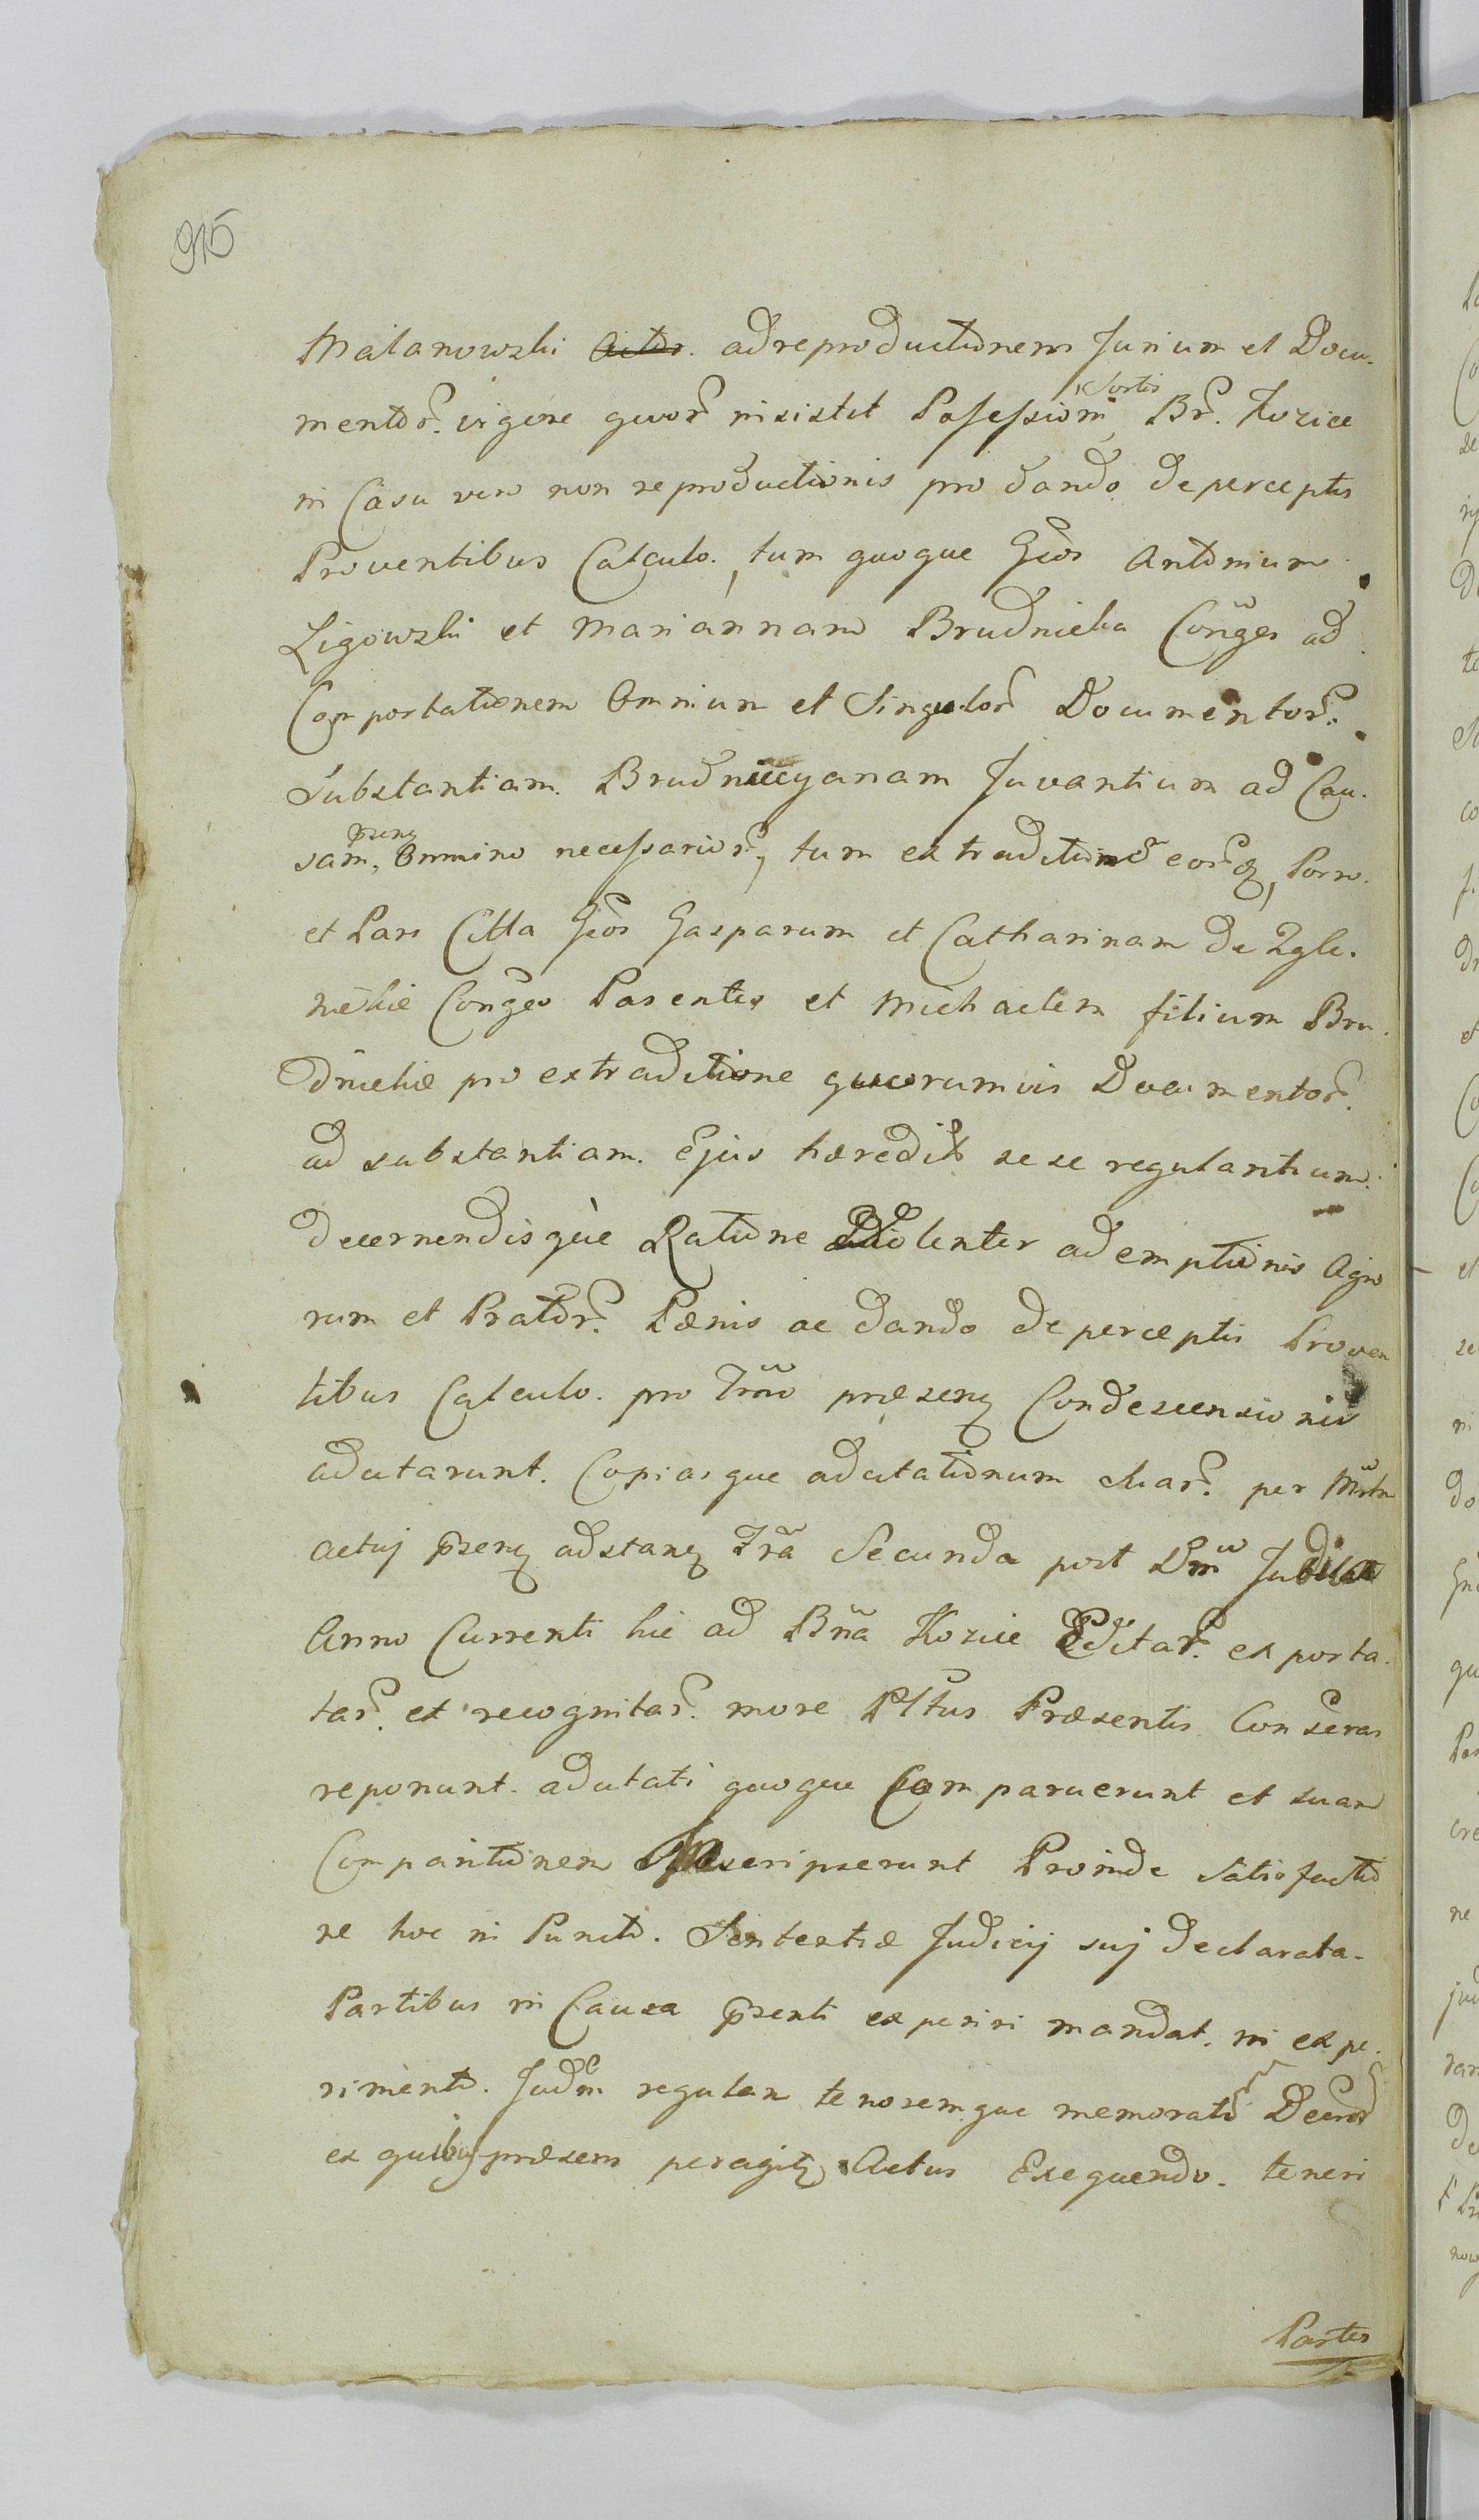 915
Malanowski Actor. ad reproductionem Jurium et Docu-
mentor. vigore quor insistit Possessioni Sortis Br. Kozice
in Casu vero non reproductionis pro dando de perceptis
Proventibus Calculo, tum quoque Gsos Antonium
Ligowski et Mariannam Brudnicka Conges ad
Comportationem Omnium et Singulor Documentor.
Substantiam Brudnicyanam Juvantium ad Cau-
sam psenq Omnino necessarior, tum extraditione eorq, Porro
et Pars Citta Gsos Gasparum et Catharinam de Zgle-
nickie Conges Parentes et Michaelem filium Bru-
dnickie pro extraditione quorumvis Documentor.
ad substantiam Ejus hæredit sese regulantium
decernendisque Ratione Violenter ademptionis Agro
rum et Prator. Pænis ac dando de perceptis Proven
tibus Calculo pro Trmo præsenq Condescensionis
adcitarunt. Copiasque adcitationum char. per Mrtm
actuj psenq adstanq Fra Secunda post Dm
Anno Currenti hic ad Bna Kozice Editar. exporta-
tar. et recognitar. more Pltus Præsentis Conseras
reponunt. adcitati quoque Comparuerunt et suam
Comparitionem scripserunt Proinde Satisfactio
ne hoc in Puncto. Sententiæ Judicij suj declarata
Partibus in Causa psenti experiri mandat. in expe-
rimento. Judm regulan tenoremque memorato Decror
ex quibus præsens peragitq Actus Exequendo. teneri
Partes